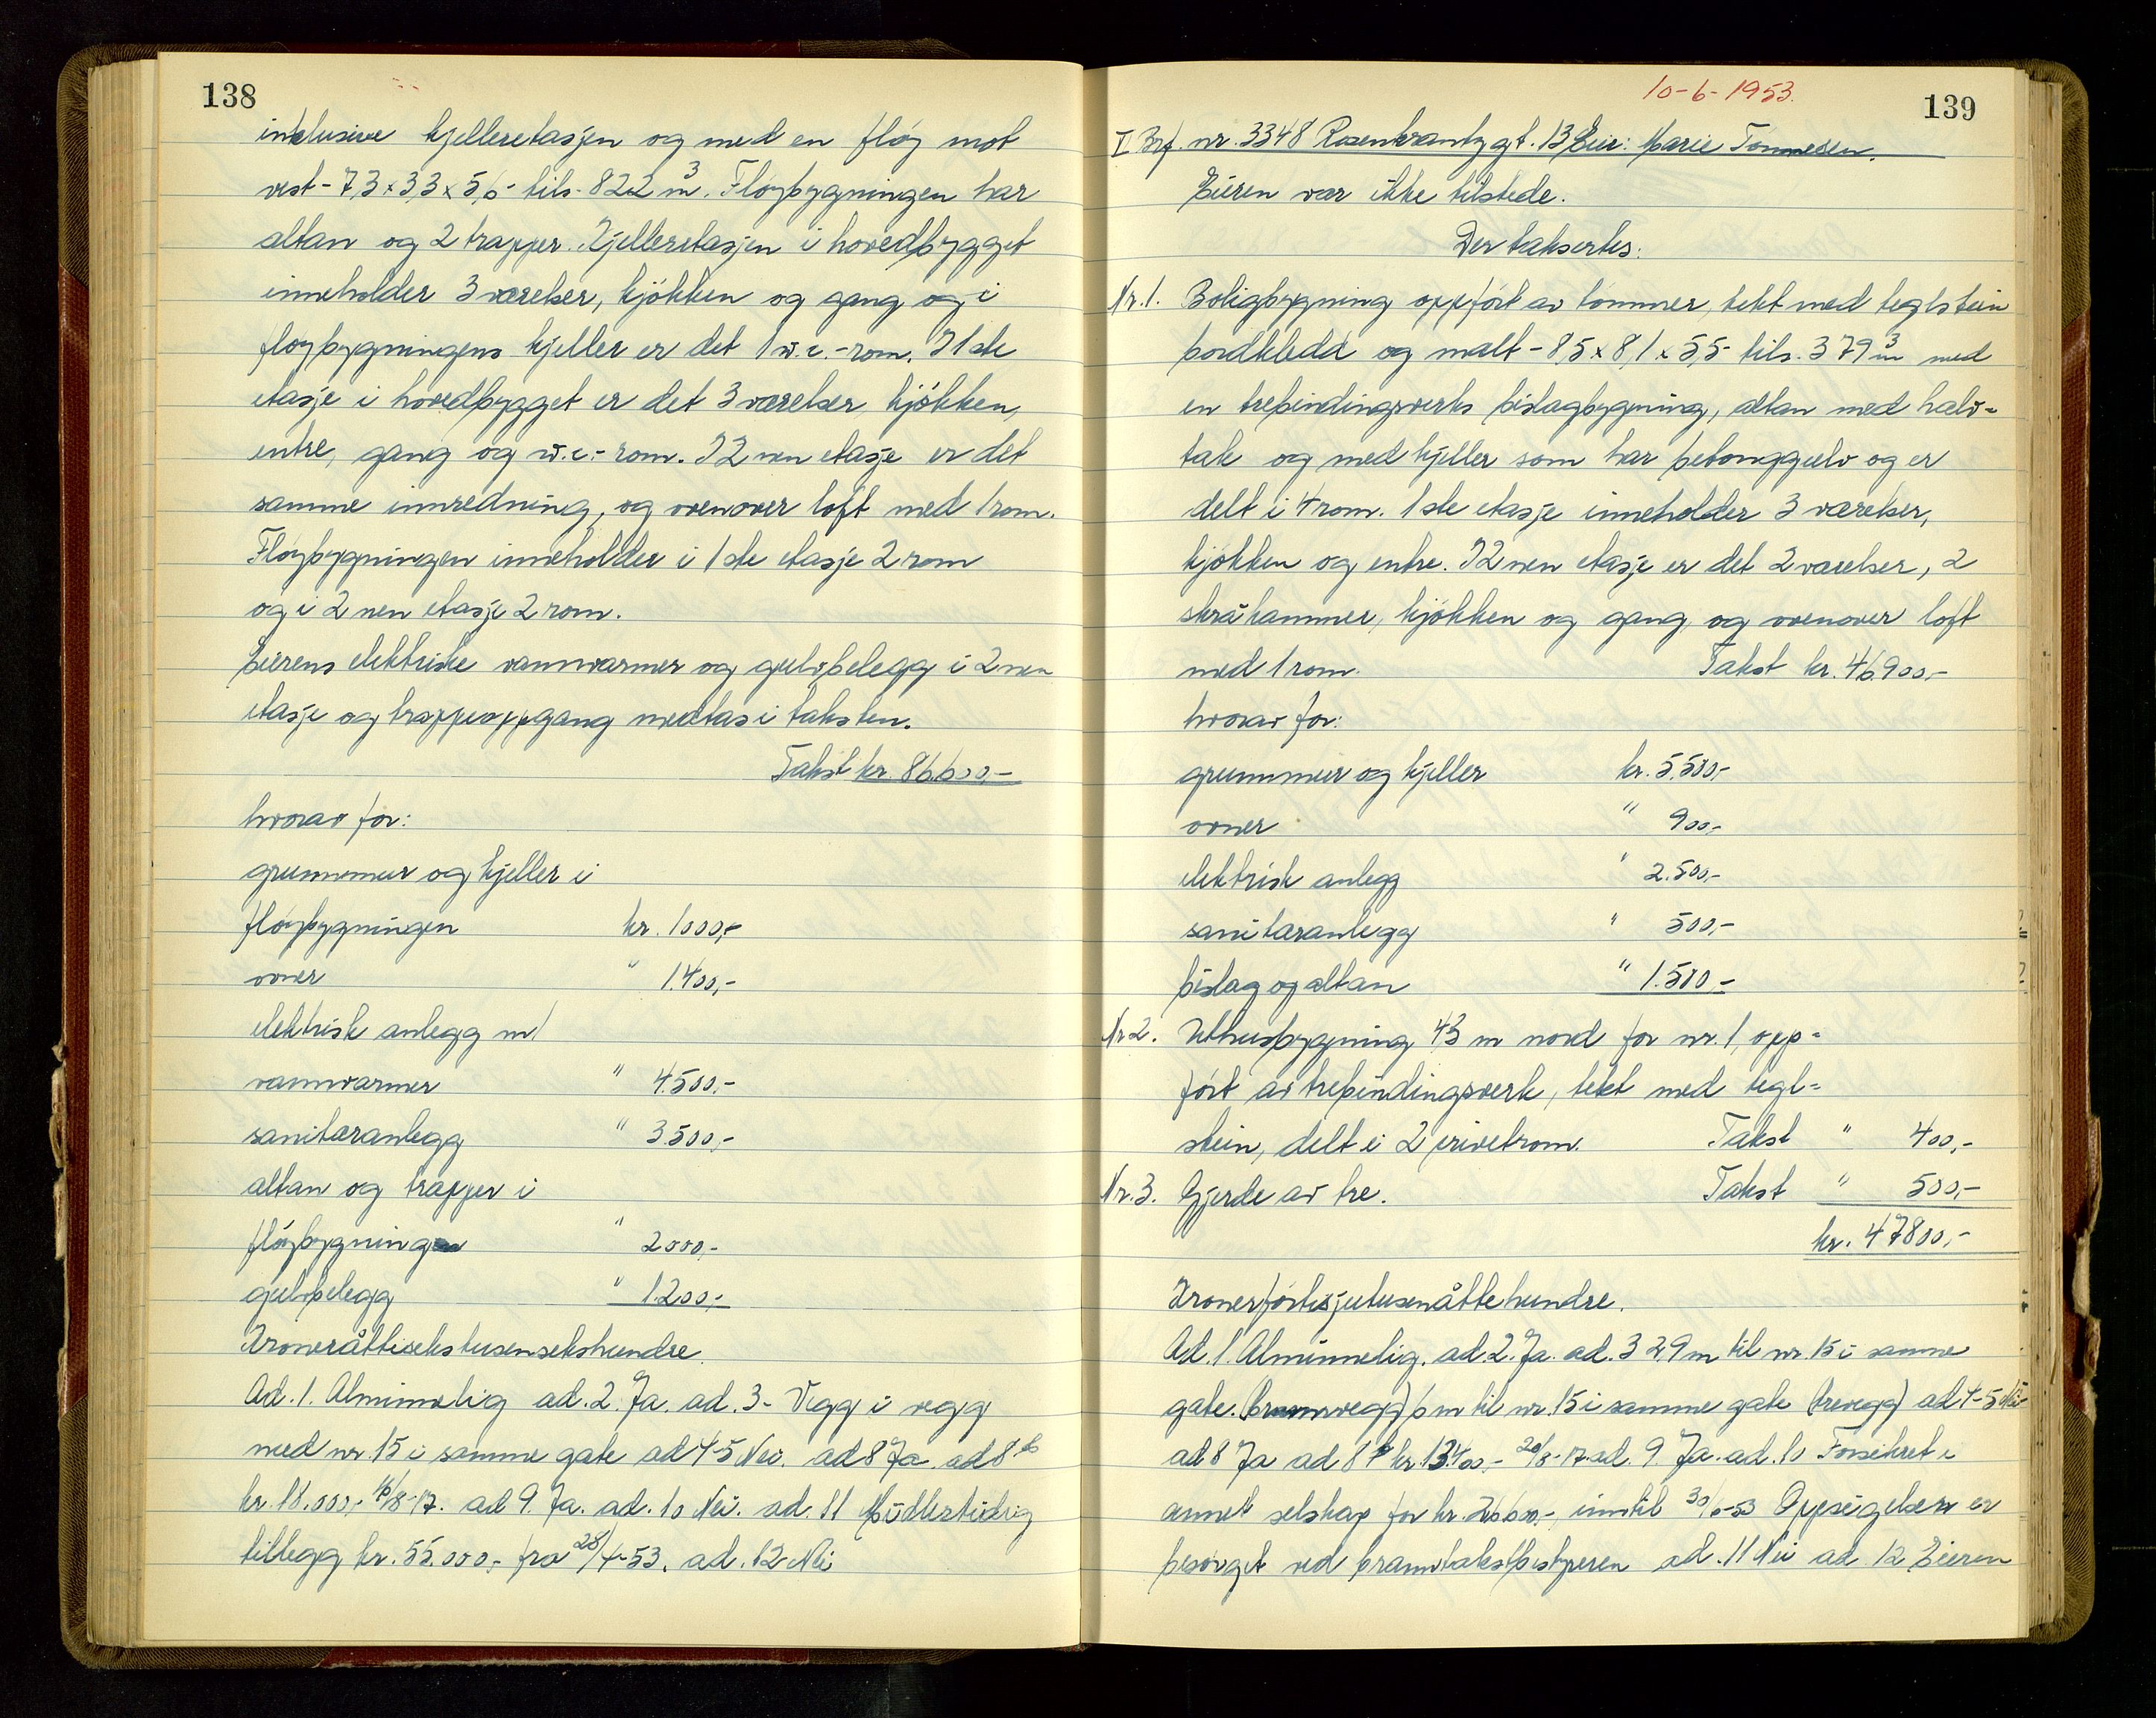 138
inklusive kjelleretasjen og med en fløy mot
vest - 7,3 x 3,3 x 5,6 - tils. 822 m³. Fløybygningen har
altan og 2 trapper. Kjelleretasjen i hovedbygget
inneholder 3 værelser, kjøkken og gang og i
fløybygningens kjeller er det 1 w.c.-rom. I 1ste
etasje i hovedbygget er det 3 værelser, kjøkken,
entre, gang og w.c.-rom. I 2nen etasje er det
samme innredning, og ovenover loft med 1 rom.
Fløybygningen inneholder i 1ste etasje 2 rom
og i 2nen etasje 2 rom.
Eierens elektriske vannvarmer og gulvbelegg i 2nen
etasje og trappeoppgang medtas i taksten.
Takst kr. 86.600,-
hvorav for:
grunnmur og kjeller i
fløybygningen kr. 1000,-
ovner " 1.400,-
elektrisk anlegg m/
vannvarmer " 4.500,-
sanitæranlegg " 3.500,-
altan og trapper i
fløybygningen " 2000,-
gulvbelegg " 1.200,-
Kroneråttisekstusensekshundre.
Ad. 1. Alminnelig ad. 2. Ja. ad. 3 - Vegg i vegg
med nr. 15 i samme gate ad 4-5 Nei. ad 8 Ja. ad 8 b
kr. 18.000,- /8-17. ad 9. Ja. ad. 10 Nei. ad. 11 Midlertidig
tillegg kr. 55.000,- fra 28/4-53. ad. 12 Nei
10-6-1953.
139
II Brf. nr. 3348 Rosenkrantzgt. 13 Eier: Marie Tønnesen.
Eieren var ikke tilstede.
Der taksertes:
Nr. 1. Boligbygning oppført av tømmer, tekt med teglstein
bordkledd og malt - 8,5 x 8,1 x 5,5 - tils. 379 m³ med
en trebindingsverks bislagbygning, altan med halv-
tak og med kjeller som har betonggulv og er
delt i 4 rom. 1ste etasje inneholder 3 værelser,
kjøkken og entre. I 2nen etasje er det 2 værelser, 2
skråkammer, kjøkken og gang, og ovenover loft
med 1 rom. Takst kr. 46.900,-
hvorav for:
grunnmur og kjeller kr. 5.500,-
ovner " 900,-
elektrisk anlegg " 2.500,-
sanitæranlegg " 500,-
bislag og altan " 1.500,-
Nr 2. Uthusbygning 4,3 m nord for nr. 1, opp-
ført av trebindingsverk, tekt med tegl-
stein, delt i 2 privetrom. Takst " 400,-
Nr. 3. Gjerde av tre. Takst " 500,-
kr. 47800,-
Kronerførtisjutusenåttehundre.
Ad. 1. Alminnelig. ad. 2. Ja. ad. 3 2,9 m til nr. 15 i samme
gate. (brannvegg) 6 m til nr. 15 i samme gate (trevegg) ad 4-5 Nei
ad 8 Ja ad 8 b kr. 13.400,- 20/8-17. ad. 9 Ja. ad. 10 Forsikret i
annet selskap for kr. 26.600,- inntil 30/6-53 Oppsigelsen er
besørget ved branntakstbestyreren ad. 11 Nei ad 12 Eieren